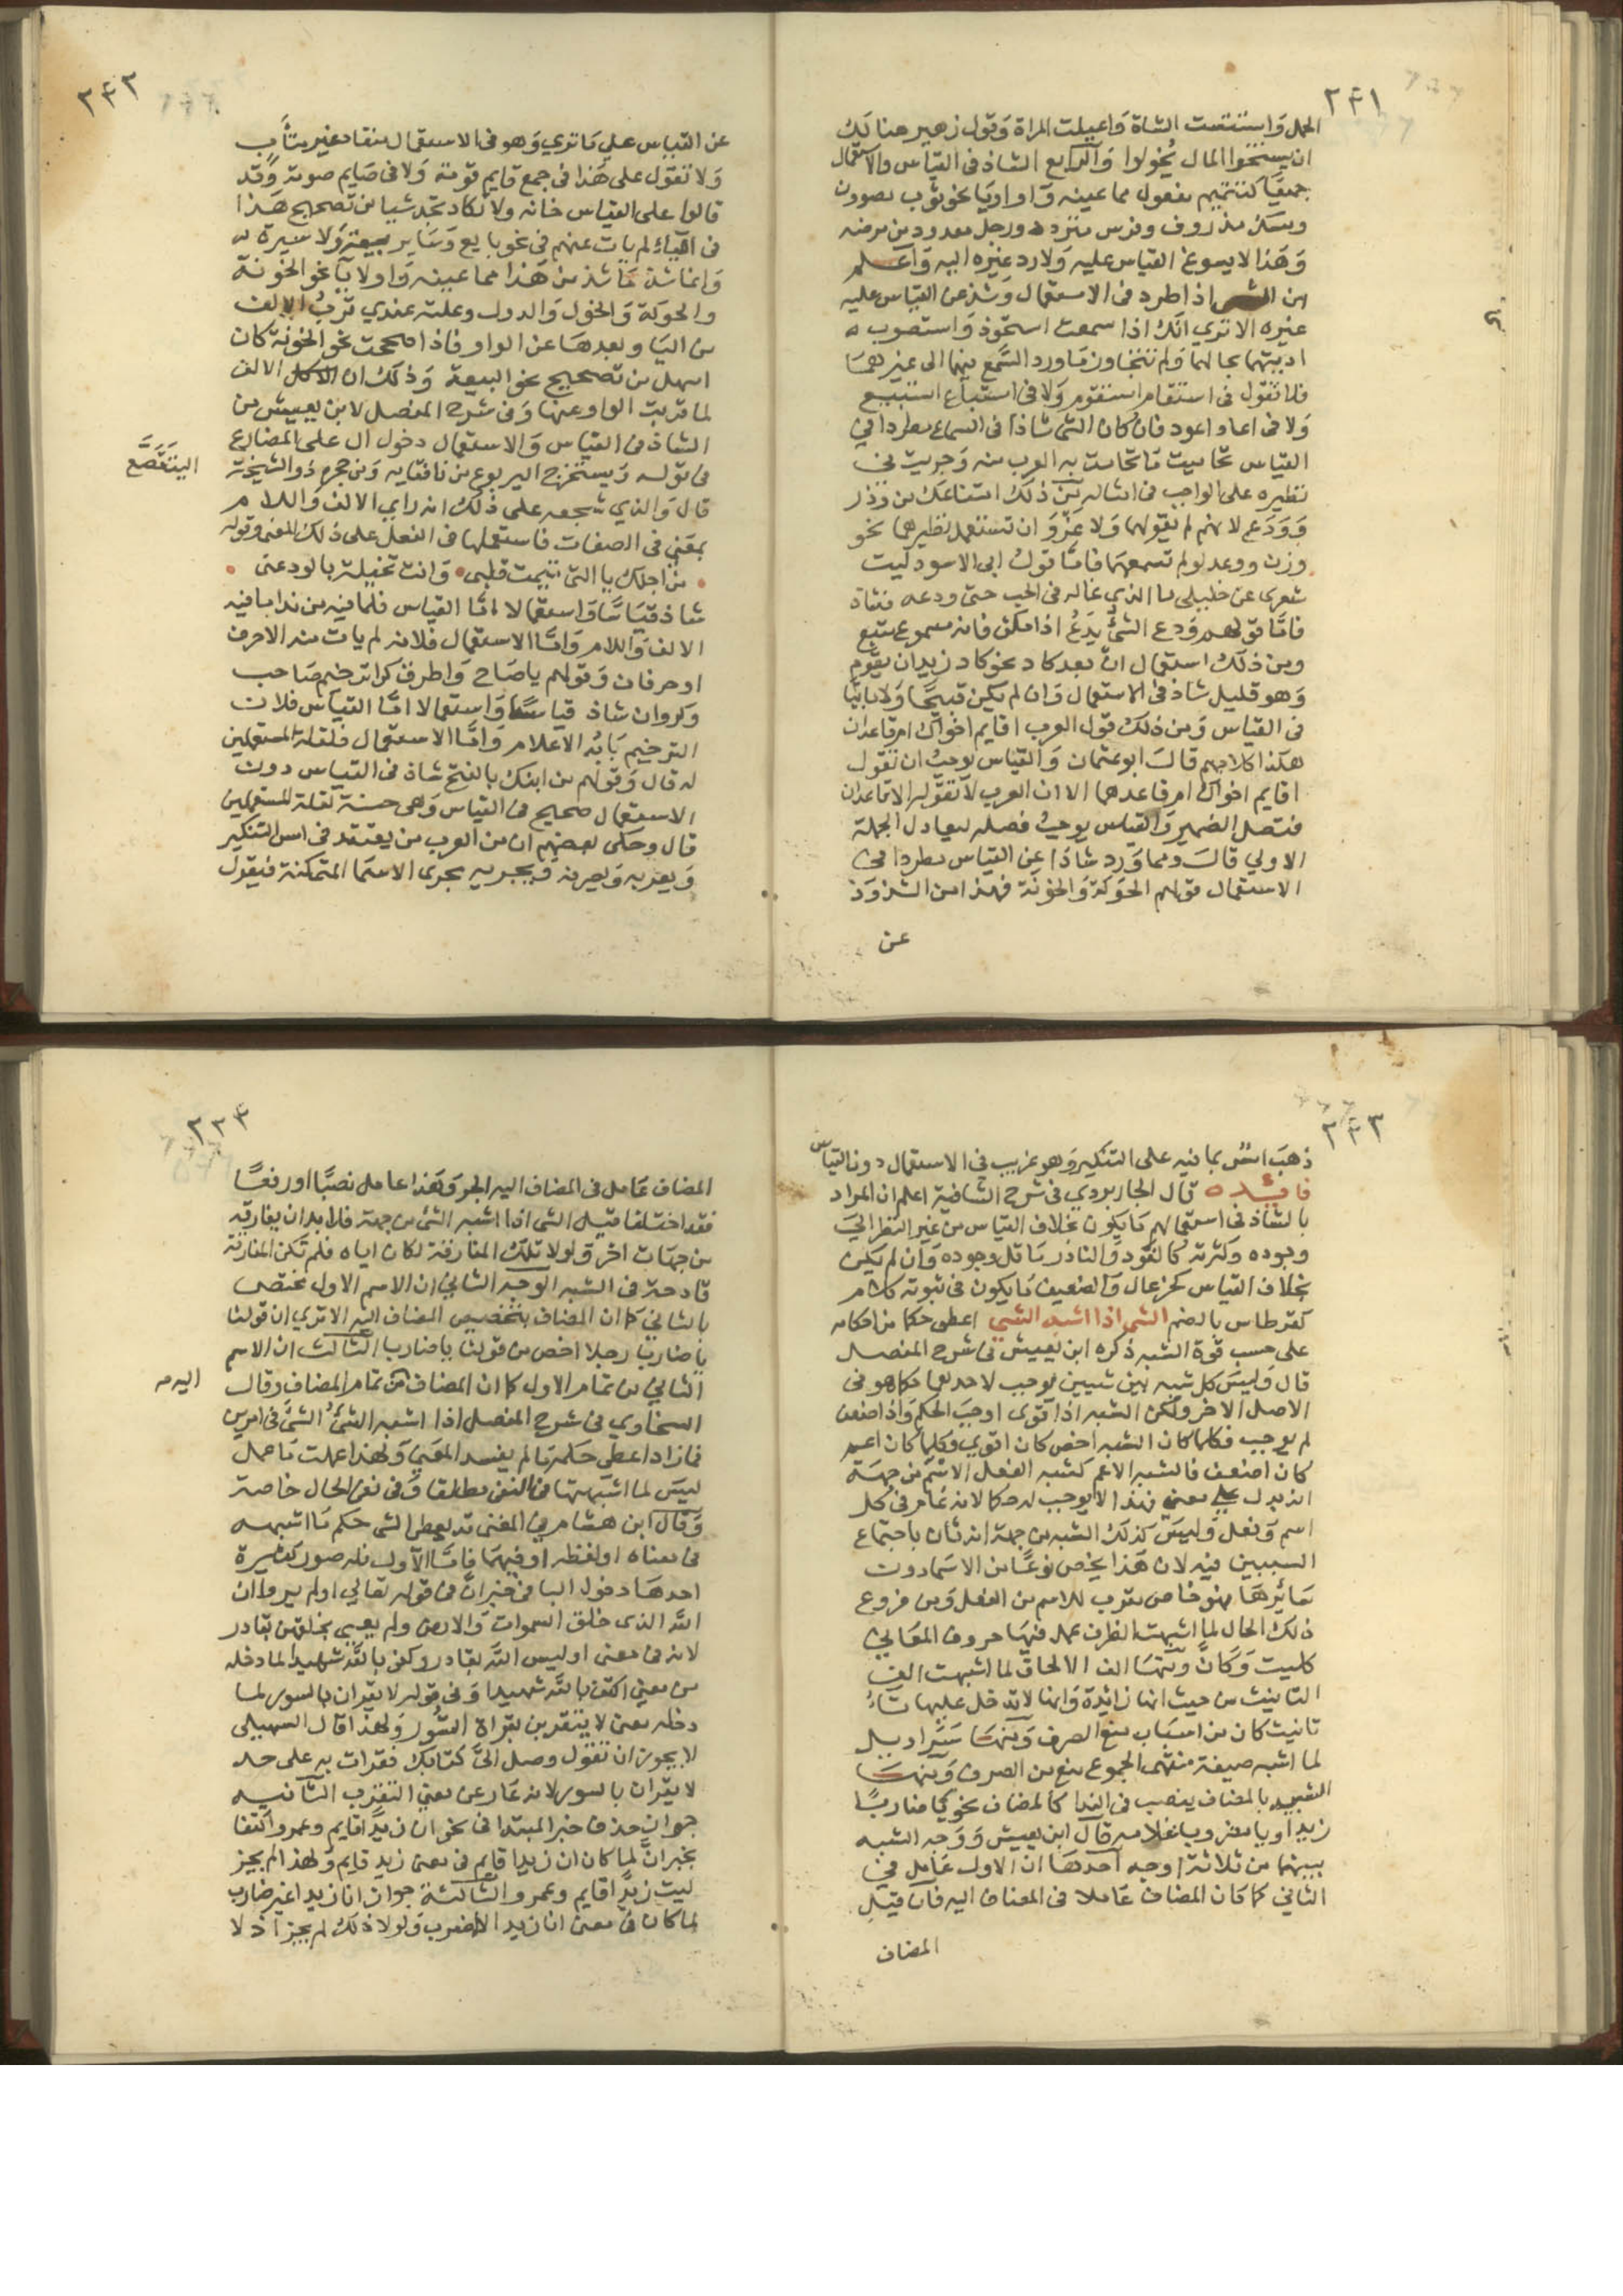 ٢٤١
الجمل واستتيست الشاة واغيلت المراة وقول زهير هنالك
ان يستخولوا المال يخولوا والرابع الشاذ في القياس والاستعمال
جميعا كتتميم مفعول مما عينه واو او يا نحو ثوب مصوون
ومسك مدووف وفرس مقوود ورجل معوود من مرضه
وهذا لا يسوغ القياس عليه ولا رد غيره اليه واعلم
ان الشي اذا اطرد في الاستعمال وشذ عن القياس عليه
غيره الا تري انك اذا سمعت استحوذ واستصوب
اديتهما بحالهما ولم تتجاوز ما ورد السمع فيهما الى غيرهما
فلا تقول في استقام استقوم ولا في استباع استبيع
ولا في اعاد اعود فان كان الشي شاذا في السماع مطردا في
القياس تحاميت ما تحامت به العرب منه وجريت في
نظيره على الواجب في امثاله من ذلك امتناعك من وذر
وودع لانهم لم يقولوهما ولا غرو ان تستعمل نظيرهما نحو
وزن ووعد لو لم تسمعهما فاما قول ابي الاسود ليت
شعري عن خليلي ما الذي غاله في الحب حتى ودعه فشاذ
فاما قولهم ودع الشئ يدع اذا سكن فانه مسموع متبع
ومن ذلك استعمال ان بعد كاد نحو كاد زيد ان يقوم
وهو قليل شاذ في الاستعمال وان لم يكن قبيحا ولا ابيّا
في القياس ومن ذلك قول العرب اقايم اخواك ام قاعدان
هكذا كلامهم قال ابو عثمان والقياس يوجب ان تقول
اقايم اخواك ام قاعد هما الا ان العرب لا تقوله الا قاعدان
فتصل الضمير والقياس يوجب فصله ليعادل الجملة
الاولي قال ومما ورد شاذا عن القياس مطردا في
الاستعمال قولهم الحوكة والخونة فهذا من الشذوذ
عن
٢٤٢
عن القياس على ما تري وهو في الاستعمال منقاد غير متأب
ولا تقول على هذا في جمع قايم قومة ولا في صايم صومة وقد
قالوا على القياس خانه ولا تكاد تجد شيا من تصحيح هذا
في الياء لم يات عنهم في نحو بايع وساير بيعة ولا سيرة
وانما شذ ما شذ من هذا مما عينه واو لا يا نحو الخونة
والحوكة والخول والدول وعلته عندي قرب الالف
من اليا وبعدها عن الواو فاذا صححت نحو الخونة كان
اسهل من تصحيح نحو البيعة وذلك ان الالف
لما قربت الواو عنها وفي شرح المفصل لابن يعيش من
الشاذ في القياس والاستعمال دخول ال على المضارع
في قوله ويستخرج اليربوع من نافقايه ومن حجره ذو الشيخة
اليتقصع
قال والذي شجعه على ذلك انه راي الالف واللام
بمعني في الصفات فاستعملها في الفعل على ذلك المعنى وقوله
من اجلك يا التي تيمت قلبي وانت بخيلة بالود عني
شاذ قياسا واستعمالا اما القياس فلما فيه من ندا ما فيه
الالف واللام واما الاستعمال فلانه لم يات منه الا حرف
او حرفان وقولهم يا صاح واطرق كرا ترخيم صاحب
وكروان شاذ قياسا واستعمالا اما القياس فلان
الترخيم بابه الاعلام واما الاستعمال فلقلة المستعملين
له قال وقولهم من ابنك بالفتح شاذ في القياس دون
الاستعمال صحيح في القياس وهي حسنة لقلة المستعملين
قال وحكى بعضهم ان من العرب من يعتقد في امس التنكير
ويعربه ويصرفه ويجريه مجرى الاسما المتمكنة فيقول
٢٤٣
ذهب امس بما فيه على التنكير وهو غريب في الاستعمال دون القياس
فايده قال الجاربردي في شرح الشافية اعلم ان المراد
بالشاذ في استعمالهم ما يكون بخلاف القياس من غير النظر الي
وجوده وكثرته كالقود والنادر ما قل وجوده وان لم يكن
بخلاف القياس كخزعال والضعيف ما يكون في ثبوته كلام
كقرطاس بالضم الشي اذا اشبه الشي اعطى حكما من احكامه
على حسب قوة الشبه ذكره ابن يعيش في شرح المفصل
قال وليس كل شبه بين شيين يوجب لاحدهما حكما هو في
الاصل الاخر ولكن الشبه اذا قوى اوجب الحكم واذا ضعف
لم يوجب فكلما كان الشبه اخص كان اقوي وكلما كان اعم
كان اضعف فالشبه الاعم كشبه الفعل الاسم من جهة
انه يدل على معني فهذا لا يوجب له حكما لانه عام في كل
اسم وفعل وليس كذلك الشبه من جهة انه ثان باجتماع
السببين فيه لان هذا يخص نوعا من الاسما دون
سائرها فهو خاص مقرب للاسم من الفعل ومن فروع
ذلك الحال لما اشبهت الظرف عمل فيها حروف المعاني
كليت وكان ومنها الف الالحاق لما اشبهت الف
التانيث من حيث انها زائدة وانها لا تدخل عليها تاء
تانيث كان من اسباب منع الصرف ومنها سراويل
لما اشبه صيغة منتهى الجموع منع من الصرف ومنها
الشبيه بالمضاف ينصب في الندا كالمضاف نحو يا ضاربا
زيدا ويا مضروبا غلامه قال ابن يعيش ووجه الشبه
بينهما من ثلاثة اوجه احدها ان الاول عامل في
الثاني كما كان المضاف عاملا في المضاف اليه فان قيل
المضاف
٢٣٤
المضاف عامل في المضاف اليه الجر وهذا عامل نصبا او رفعا
فقد اختلفا قيل الشي اذا اشبه الشئ من جهة فلا بد ان يفارقه
من جهات اخر ولولا تلك المفارقة لكان اياه فلم تكن المفارقة
قادحة في الشبه الوجه الثاني ان الاسم الاول مختص
بالثاني كما ان المضاف يتخصص المضاف اليه الا تري ان قولنا
يا ضاربا رجلا اخص من قولنا يا ضاربا الثالث ان الاسم
الثاني من تمام الاول كما ان المضاف من تمام المضاف وقال
اليه
السخاوي في شرح المفصل اذا اشبه الشئ الشئ في امرين
فما زاد اعطى حكمه ما لم يفسد المعنى ولهذا عملت ما عمل
ليس لما اشبهتها في النفي مطلقا وفي نفي الحال خاصة
وقال ابن هشام في المغني قد يعطى الشي حكم ما اشبهه
في معناه او لفظه او فيهما فاما الاول فله صور كثيرة
احدها دخول البا في خبر ان في قوله تعالي اولم يروا ان
الله الذي خلق السموات والارض ولم يعي بخلقهن بقادر
لانه في معنى اوليس الله بقادر وكفى بالله شهيدا لما دخله
من معني اكتف بالله شهيدا وفي قوله لا يقران بالسور لما
دخله معنى لا يتقربن بقراة السور ولهذا قال السهيلى
لا يجوز ان تقول وصل الي كتابك فقرات به على حد
لا يقران بالسور لانه عار عن معني التقرب الثانيه
جواز حذف خبر المبتدا في نحو ان زيدا قايم وعمرو اكتفا
بخبر ان لما كان ان زيدا قايم في معنى زيد قايم ولهذا لم يجز
ليت زيدا قايم وعمرو الثالثة جواز انا زيدا غير ضارب
لما كان في معنى انا زيدا لا اضرب ولولا ذلك لم يجز اذ لا